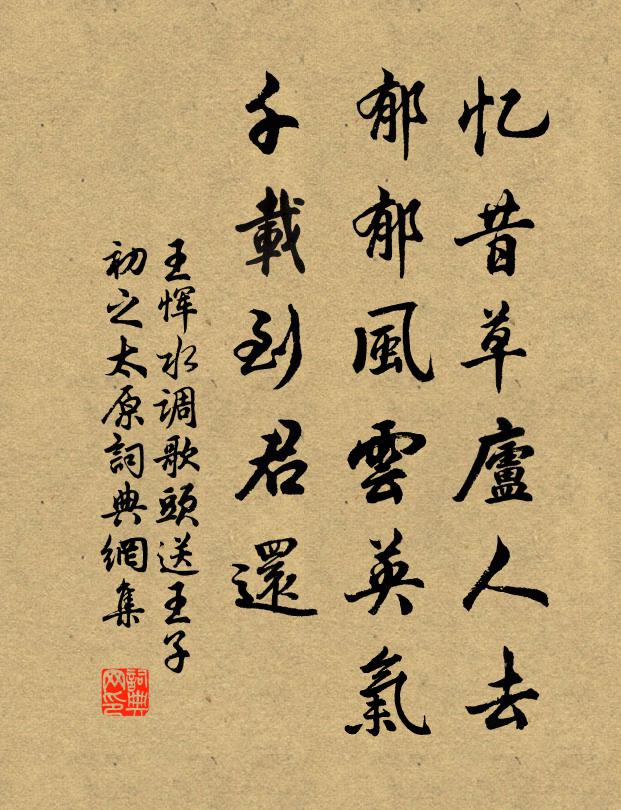 忆昔草廬人去
郁郁風雲英氣
千載到君還
王恽水调歌頭送王子
初之太原詞典網集
詞典
网印